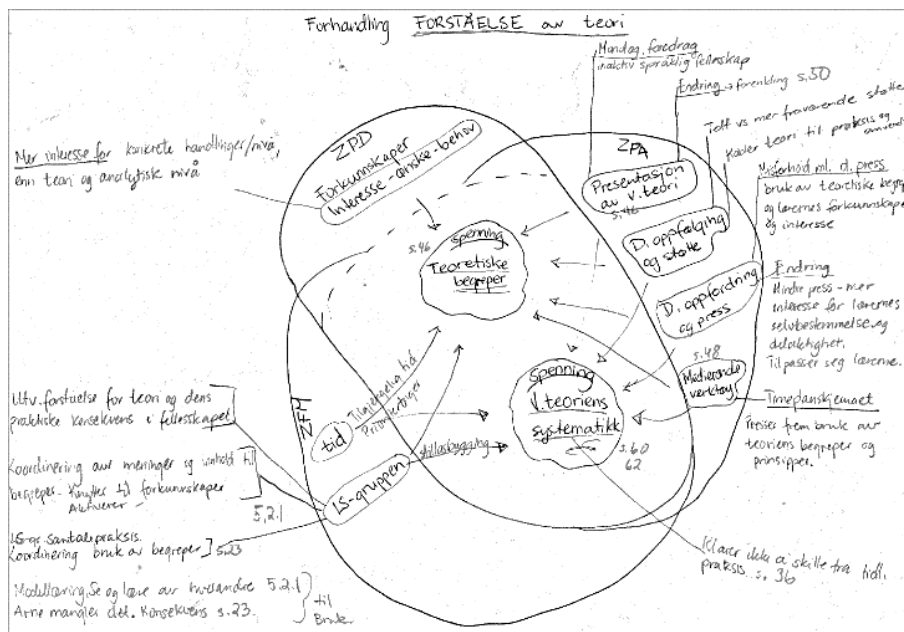 Forhandling FORSTÅELSE av teori
Mandag, foredrag
inaktiv språklig fellesskap
Endring → forenkling s.50
Tett vs mer fraværende støtte
Kobler teori til praksis og
Misforhold ml. d. press
bruk av teoretiske begrep
og lærernes forkunnskape
og interesse
Endring
Mindre press - mer
interesse for lærernes
selvbestemmelse og
delaktighet.
Tilpasser seg lærerne.
Timeplanskjemaet
frem bruk av
teoriens begreper og
prinsipper.
Klarer ikke å skille fra tidl.
praksis s. 36
Mer interesse for konkrete handlinger/nivå,
enn teori og analytisk nivå
ZPD
Forkunnskaper
Interesse-ønske-behov
ZPA
Presentasjon
av V.teori
s.46
D. oppfølging
og støtte
D. oppfordring
og press
s.48
Medierende
verktøy
s.46
spenning
Teoretiske
begreper
spenning
V.teoriens
systematikk
s.60
62
ZFM
tid
Tilgjengelig tid
Prioriteringer
stillasbygging
LS-gruppen
Utv. forståelse for teori og dens
praktiske konsekvens i fellesskapet
Koordinering av meninger og innhold til
begreper - Knytter til forkunnskaper
Aktiverer -
5.2.1
LS-gr samtalepraksis.
Koordinering bruk av begreper
s.23
Modellæring, Se og lære av hverandre 5.2.1
Arne mangler det. Konsekvens s.23.
til
Bruke